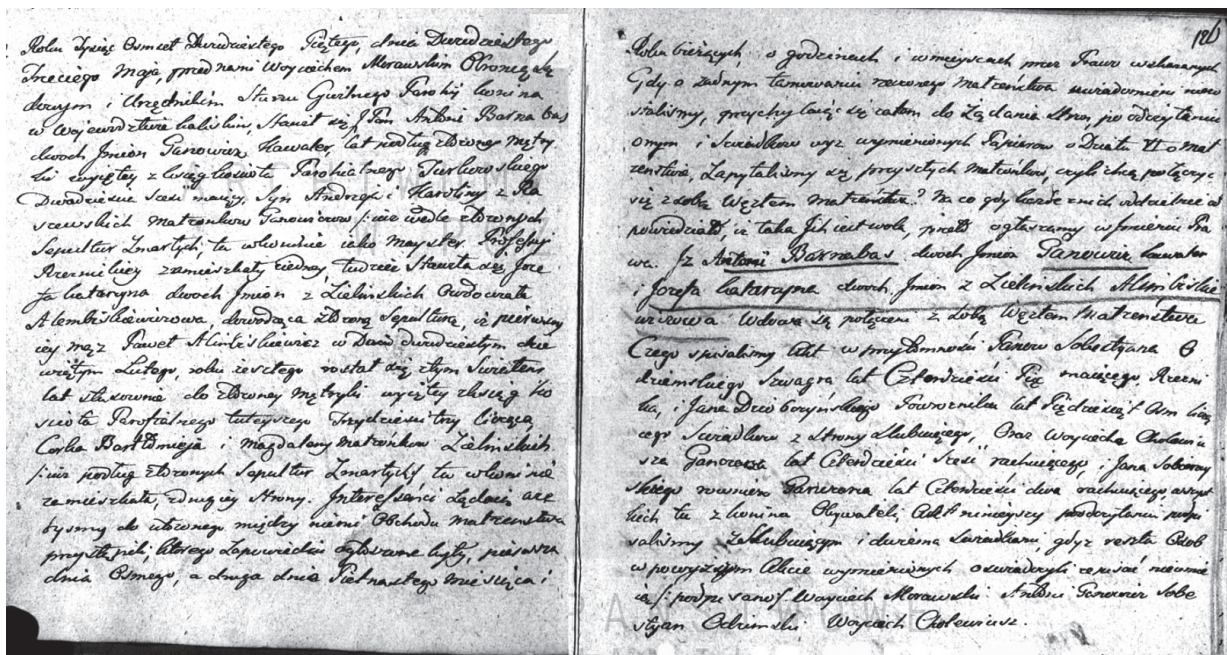 Roku Tysiąc Osmset Dwudziestego Piątego, dnia Dwudziestego
Trzeciego Maja, przed nami Woyciechem Morawskim Obrońcą Są
dowym i Urzędnikim Stanu Cywilnego Parafij Konina
w Wojewodztwie Kaliskim, Stawił się J Pan Antoni Barnabas
dwoch Jmion Ganowicz Kawaler, lat podług złożoney metry
ki wyjętey z ksiąg kościoła Parochialnego Turkowskiego
Dwadziescia szesc maiący, Syn Andrzeja i Karoliny z Ra
szewskich Małżonkow Ganowiczow /: iuż wedle złożonych
Sepultur Zmarłych, tu w Koninie iako Mayster Professyi
Rzeznickiey zamieszkały z iedney, tudzież Stawiła się Joze
fa Katarzyna dwoch Jmion z Zielinskich Owdowiała
Alembikiewiczowa dowodząca złożoną sepulturą, iż pierwszy
iey mąż Paweł Alimbikiewicz w Dniu dwudziestym dzie
wiątym Lutego, roku zeszłego rostał się z tym Swiatem
lat stosownie do złożoney metryki wyiętey z ksiąg ko
scioła Parafialnego tuteyszego Trzydziesci trzy licząca
Corka Bartłomieja i Magdaleny Małżonkow Zielinskich
/: iuż podług złożonych Sepultur Zmarłych/ tu w Koninie
zamieszkała, z drugiey strony. Interessanci żądaią aże
bysmy do ułożonego między niemi Obchodu Małżenstwa
przystąpili, ktorego zapowiedzie ogłoszone były, pierwsza
dnia Osmego, a druga dnia Piętnastego miesiąca i
120
Roku bieżących, o godzinach i w mieyscach przez Prawo wskazanych
Gdy o żadnym tamowaniu rzeczonego małżenstwa uwiadomieni niezo
stalismy, przychylaiąc się zatem do żądania stron, po odczytaniu
onym i Swiadkom wyz wymienionych Papierow o Dziale VI o mał
żenstwie, Zapytalismy się przyszłych małżonkow, czyli chcą połączyć
się z sobą Węzłem małżenstwa? Na co gdy każde z nich oddzielnie od
powiedziało, iż taka Jch iest wola, przeto ogłaszamy w Jmieniu Pra
wa. Jż Antoni Barnabas dwoch Jmion Ganowicz kawaler
i Jozefa Katarzyna dwoch Jmion z Zielinskich Alimbikie
wiczowa Wdowa są połączeni z sobą Węzłem Małżenstwa
Czego spisalismy Akt w przytomności Panow Sobestyana O
dzimskiego, Szwagra lat Czterdzieści Pięć maiącego, Rzezni
ka, i Jana Powroznika lat Pięćdziesiąt Osm licz
ącego Swiadkow z strony Slubuiącego, Oraz Woyciecha Cholewiu
sza Garncarza lat Czterdzieści Szesc rachuiącego, i Jana
skiego rownież lat Czterdzieści dwa rachuiącego wszyst
kich tu z Konina Obywateli, Akt ninieyszy po odczytaniu podpi
salismy z Slubuiącym i dwiema Swiadkami, gdyż reszta Osob
w powyższym Akcie wymienionych oświadczyli że pisać nieumie
ią /: podpisano/. Woyciech Morawski. Antoni Ganowicz Sobe
styan Odzimski Woyciech Cholewiusz.